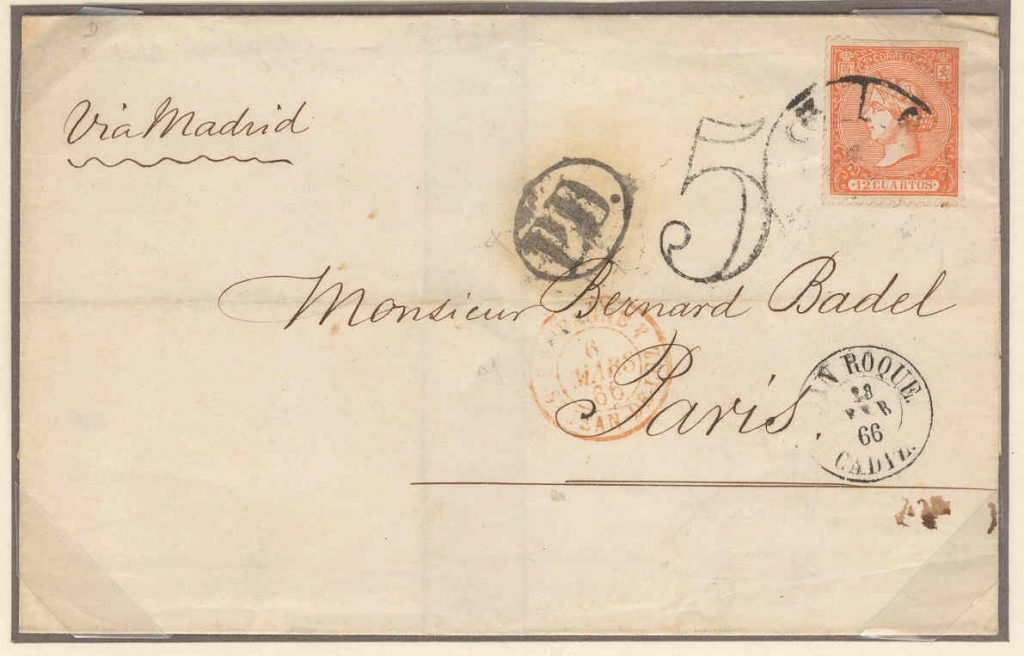 Via Madrid
CORREOS
12 CUARTOS
P.D.
5
Monsieur Bernard Badel
Paris.
6
MARS
66
JEAN DE LUZ
SAN ROQUE.
28
FEB
66
CADIZ.